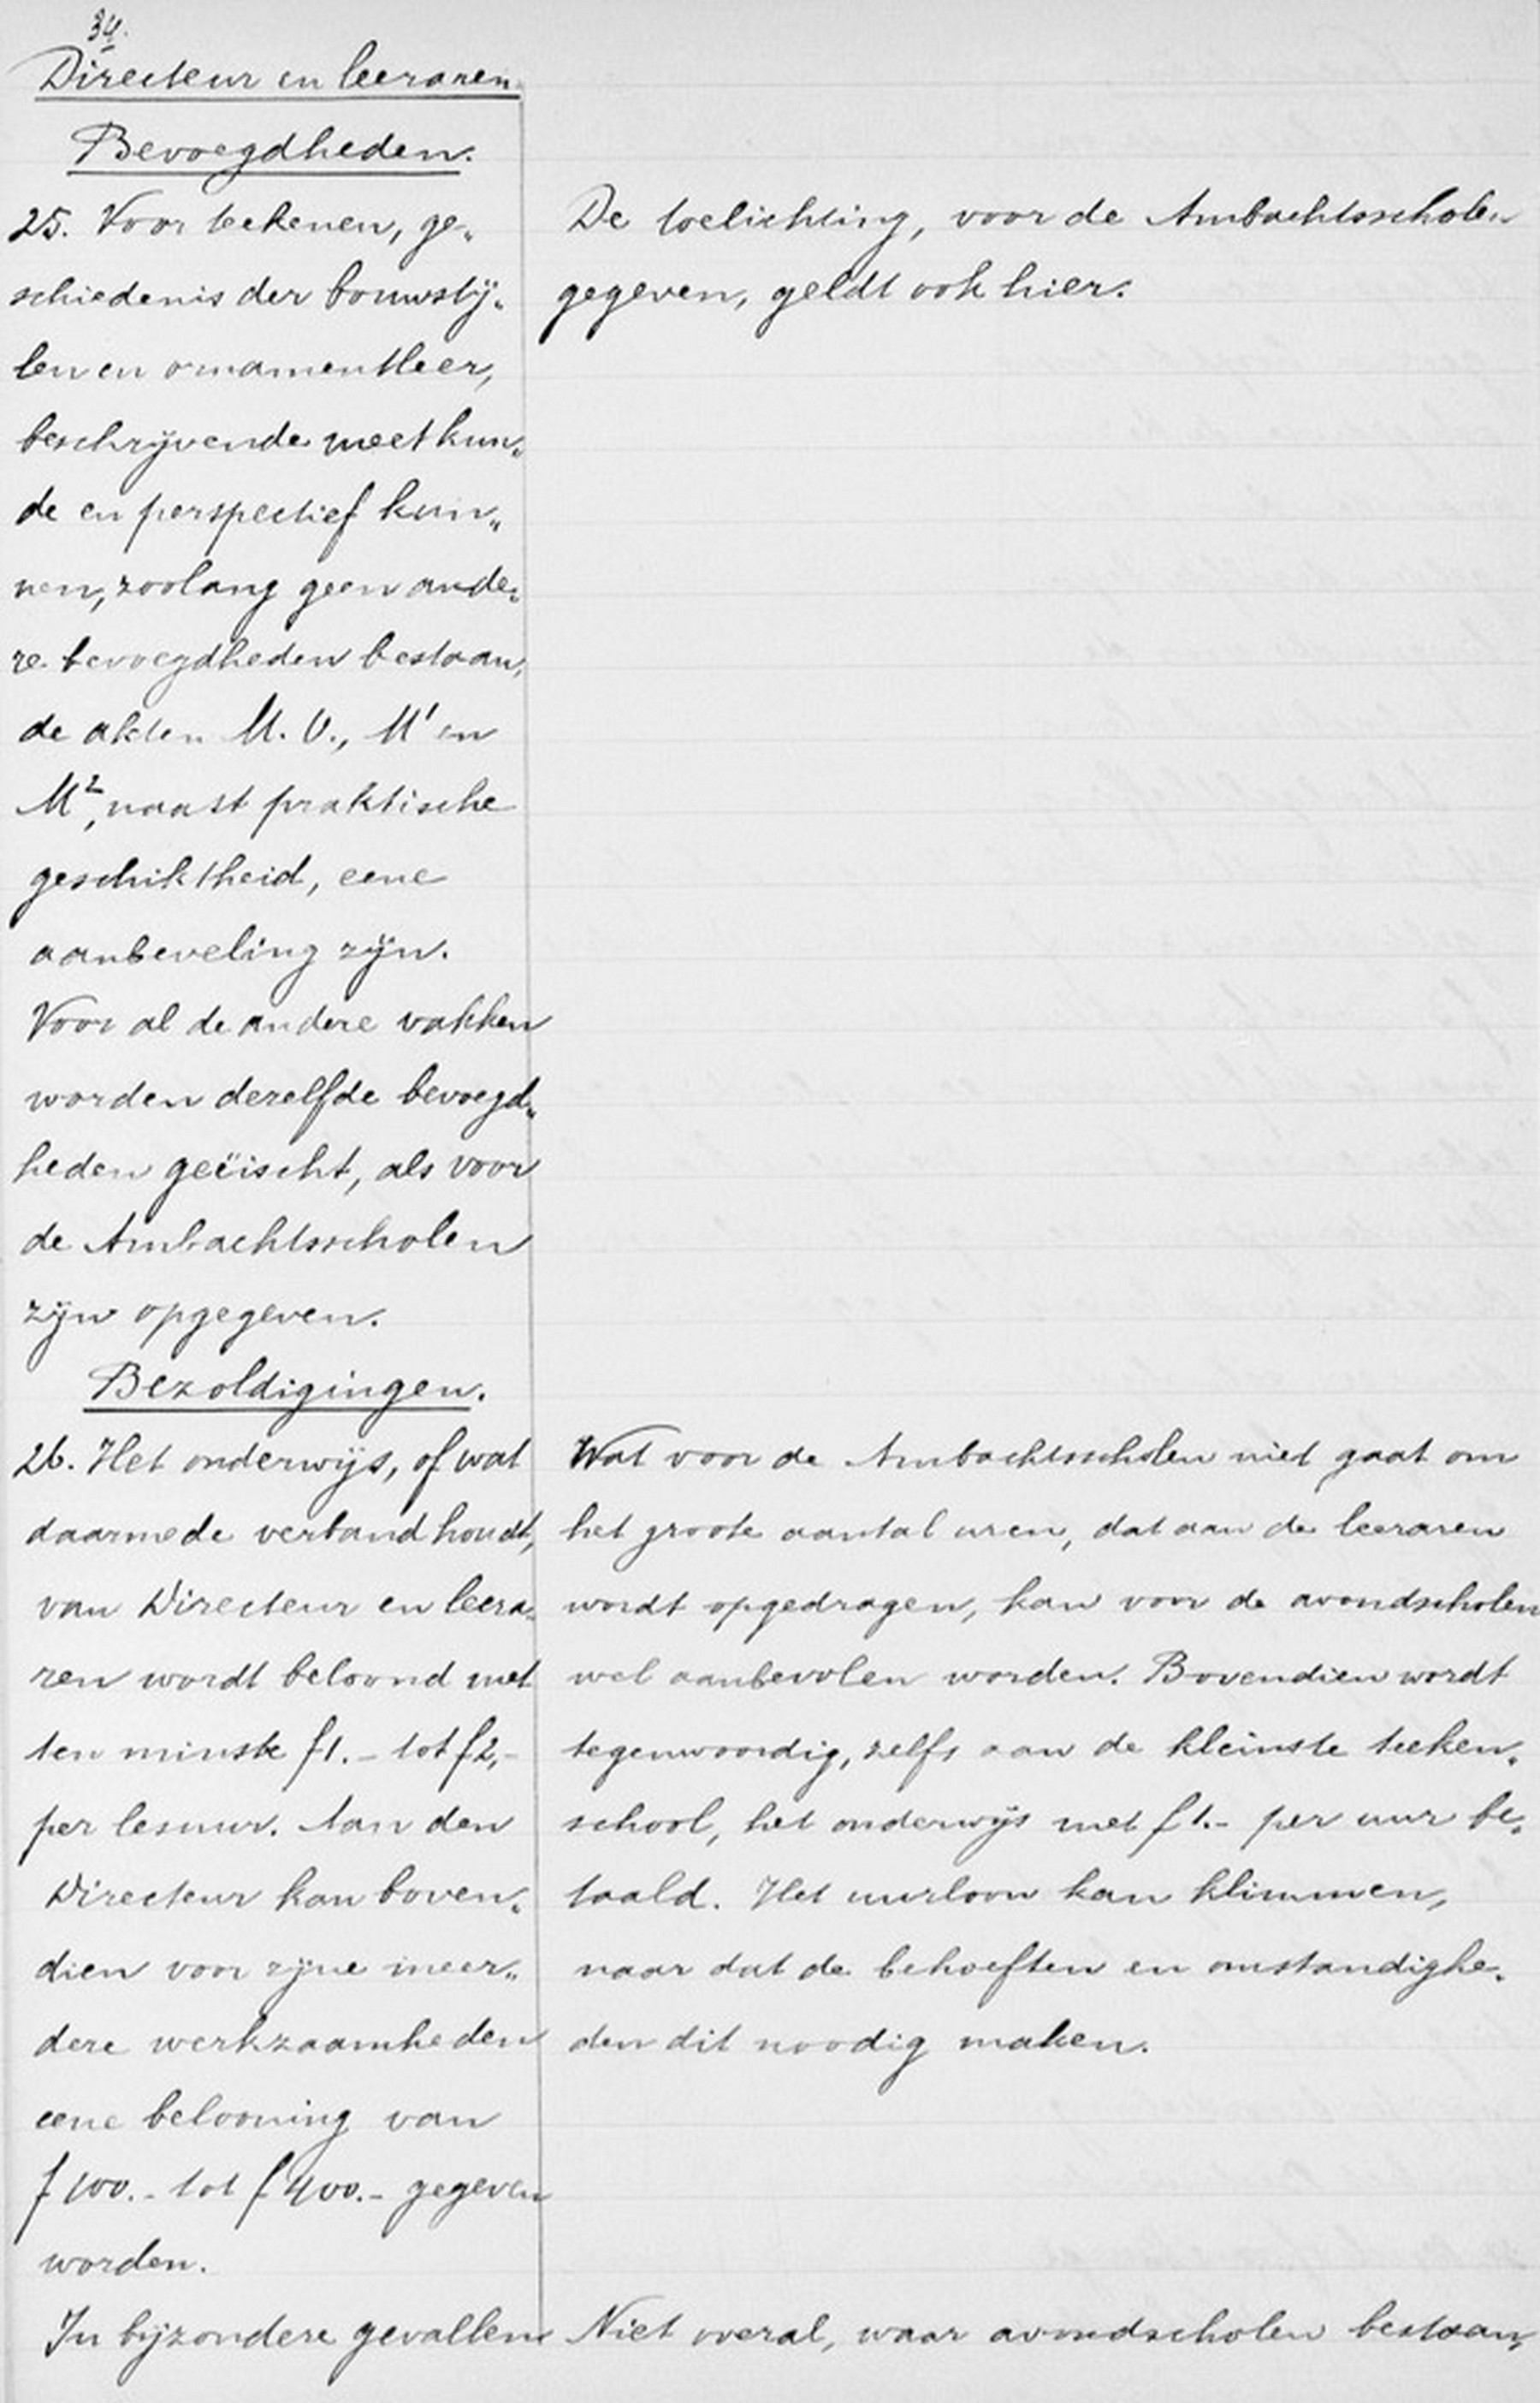 34.
Directeur en leeraren.
Bevoegdheden.
25. Voor teekenen, ge„
schiedenis der bouwstij„
len en ornamentleer,
beschrijvende meetkun„
de en perspectief kun„
nen, zoolang geen ande„
re bevoegdheden bestaan,
de akten M.O., M¹ en
M², naast praktische
geschiktheid, eene
aanbeveling zijn.
Voor al de andere vakken
worden derelfde bevoegd„
heden geëischt, als voor
de Ambachtsscholen
zijn opgegeven.
Bezoldigingen.
26. Het onderwijs, of wat
daarmede verband houdt,
van Directeur en leera„
ren wordt beloond met
ten minste f1.- tot f2,-
per lesuur. Aan den
Directeur kan boven„
dien voor zijne meer„
dere werkzaamheden
eene belooning van
f 100.- tot f 400.- gegeven
worden.
In bijzondere gevallen
De toelichting, voor de Ambachtsscholen
gegeven, geldt ook hier.
Wat voor de Ambachtsscholen niet gaat om
het groote aantal uren, dat aan de leeraren
wordt opgedragen, kan voor de avondscholen
wel aanbevolen worden. Bovendien wordt
tegenwoordig, zelfs aan de kleinste teeken„
school, het onderwijs met f 1.- per uur be„
taald. Het uurloon kan klimmen,
naar dat de behoeften en omstandighe„
den dit noodig maken.
Niet overal, waar avondscholen bestaan,